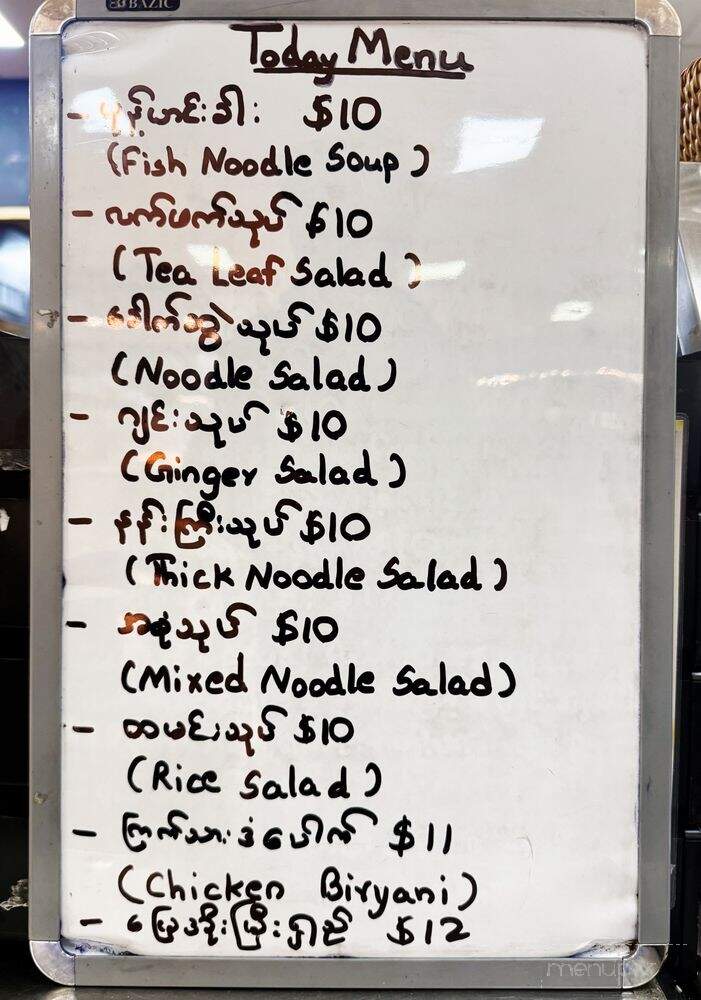 BAZIC
Today Menu
- မုန့်ဟင်းခါး $10
(Fish Noodle Soup)
- လက်ဖက်သုပ် $10
(Tea Leaf Salad)
- ခေါက်ဆွဲသုပ် $10
(Noodle Salad)
- ဂျင်းသုပ် $10
(Ginger Salad)
- နန်းကြီးသုပ် $10
(Thick Noodle Salad)
- အစုံသုပ် $10
(Mixed Noodle Salad)
- ထမင်းသုပ် $10
(Rice Salad)
- ကြက်သားဒံပေါက် $11
(Chicken Biryani)
- $12
menu